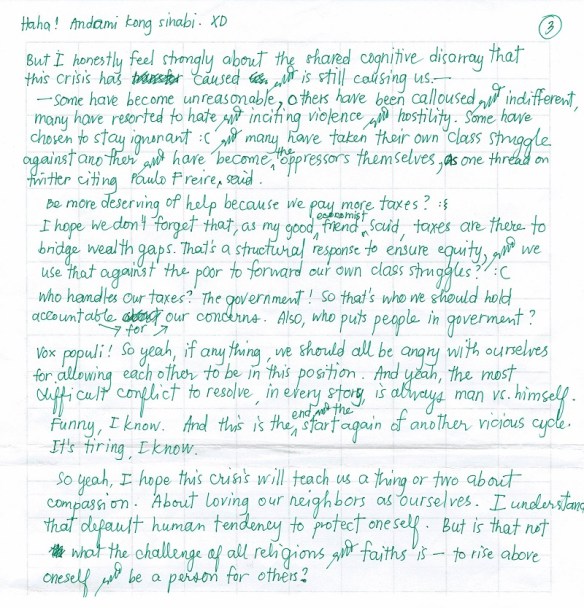 Haha! Andami kong sinabi. XD
3
But I honestly feel strongly about the shared cognitive disarray that
this crisis has caused and is still causing us.—
— Some have become unreasonable, others have been calloused and indifferent,
many have resorted to hate and inciting violence and hostility. Some have
chosen to stay ignorant :C and many have taken their own class struggle
against another and have become the oppressors themselves, as one thread on
twitter citing Paulo Freire, said.
Be more deserving of help because we pay more taxes? :§
I hope we don't forget that, as my good economist friend said, taxes are there to
bridge wealth gaps. That's a structural response to ensure equity, and we
use that against the poor to forward our own class struggles? :C
Who handles our taxes? The government! So that's who we should hold
accountable for our concerns. Also, who puts people in goverment?
Vox populi! So yeah, if anything, we should all be angry with ourselves
for allowing each other to be in this position. And yeah, the most
difficult conflict to resolve, in every story, is always man vs. himself.
Funny, I know. And this is the end and the start again of another vicious cycle.
It's tiring, I know.
So yeah, I hope this crisis will teach us a thing or two about
compassion. About loving our neighbors as ourselves. I understand
that default human tendency to protect oneself. But is that not
what the challenge of all religions and faiths is — to rise above
oneself and be a person for others?